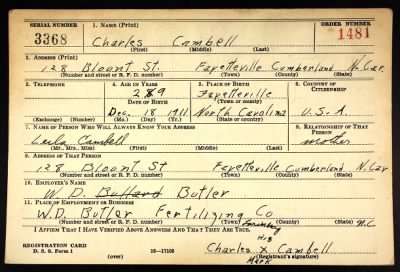 SERIAL NUMBER 1. NAME (Print) ORDER NUMBER
3368 Charles Cambell 1481
(First) (Middle) (Last)
2. ADDRESS (Print)
128 Blount St. Fayetteville Cumberland N.Car.
(Number and street or R. F. D. number) (Town) (County) (State)
3. TELEPHONE 4. AGE IN YEARS 5. PLACE OF BIRTH 6. COUNTRY OF CITIZENSHIP
289 Fayetteville
DATE OF BIRTH (Town or county)
Dec. 18 1911 North Carolina U.S.A.
(Exchange) (Number) (Mo.) (Day) (Yr.) (State or country)
7. NAME OF PERSON WHO WILL ALWAYS KNOW YOUR ADDRESS 8. RELATIONSHIP OF THAT PERSON
Cambell mother
(Mr., Mrs., Miss) (First) (Middle) (Last)
9. ADDRESS OF THAT PERSON
128 Blount St. Fayetteville Cumberland N.Car
(Number and street or R. F. D. number) (Town) (County) (State)
10. EMPLOYER'S NAME
W. D. Bullard Butler
11. PLACE OF EMPLOYMENT OR BUSINESS
W.D. Butler Fertilizing Co. N.C
(Number and street or R. F. D. number) (Town) (County) (State)
I AFFIRM THAT I HAVE VERIFIED ABOVE ANSWERS AND THAT THEY ARE TRUE.
His
REGISTRATION CARD Charles X Cambell
D. S. S. Form 1 16—17105 (Registrant's signature)
Mark